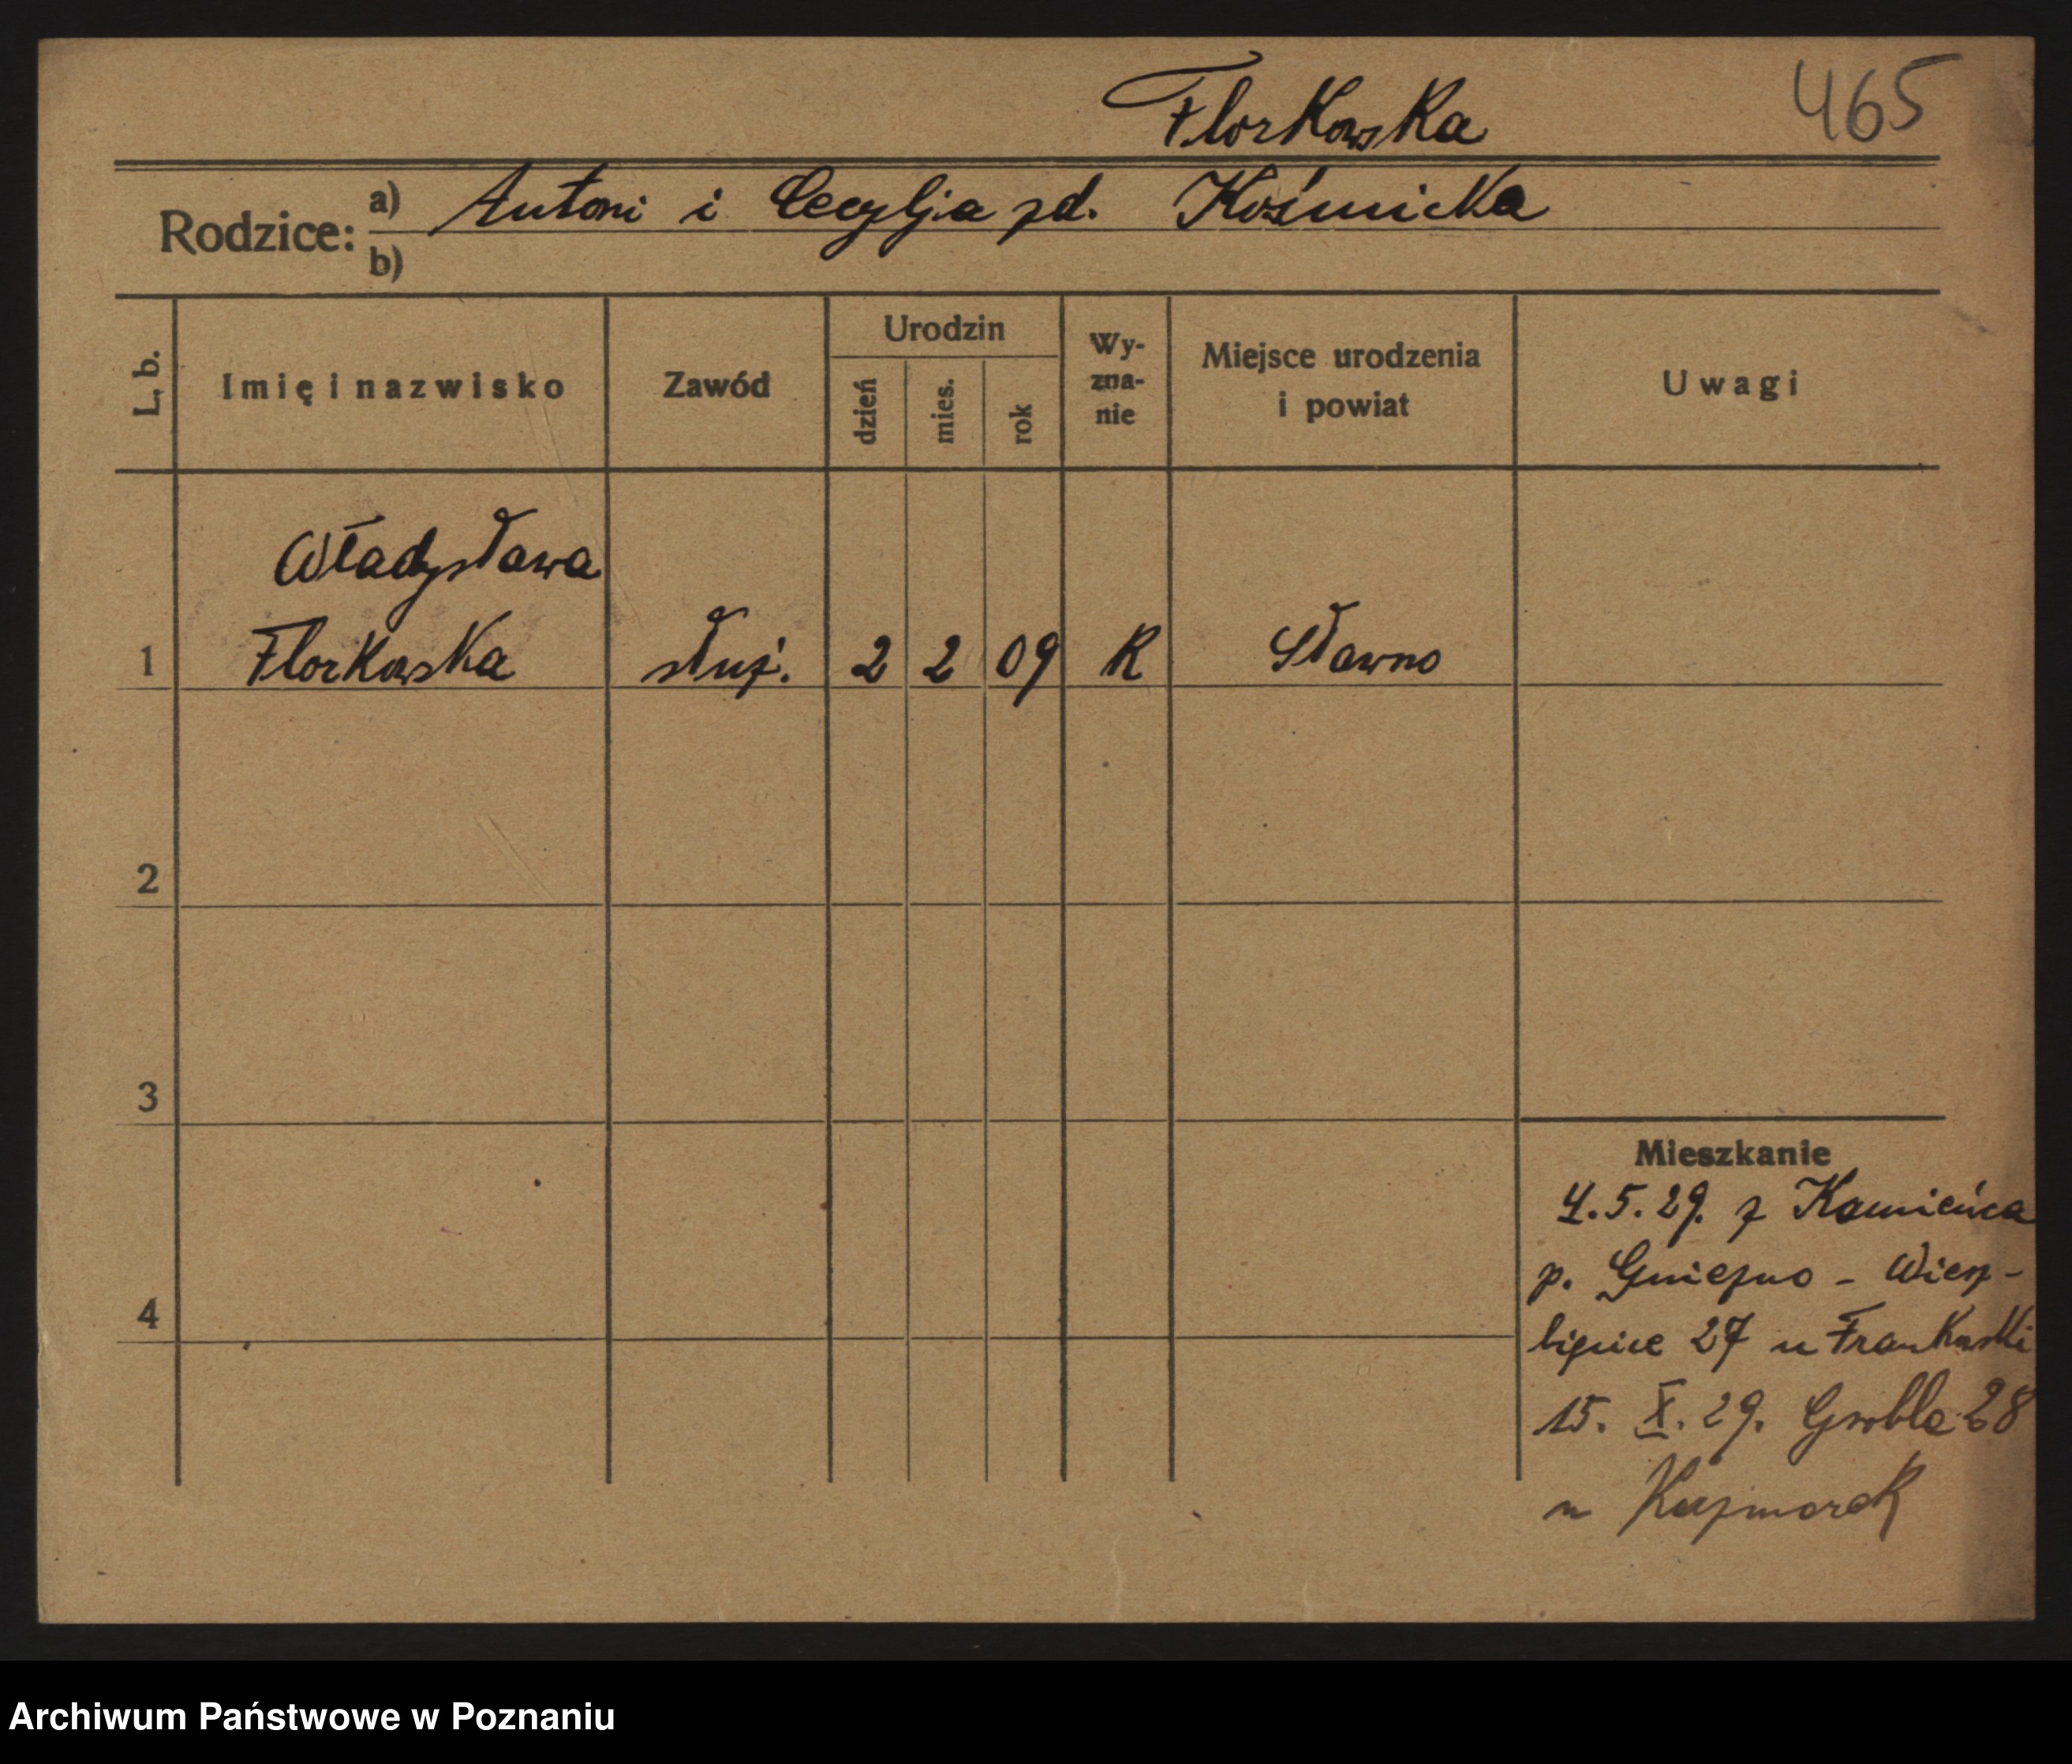 Florkowska
465
Rodzice: a) Antoni i Cecylja zd. Kośmicka
b)
L. b.
Imię i nazwisko
Zawód
Urodzin
dzień
mies.
rok
Wy-
zna-
nie
Miejsce urodzenia
i powiat
Uwagi
Władysława
1 Florkowska służ. 2 2 09 R Sławno
2
3
4
Mieszkanie
4.5.29. z Kamieńca
p. Gniezno - Wierz-
bięcice 27 u
15. X. 29. Grobla 28
u Kaźmarek
Archiwum Państwowe w Poznaniu